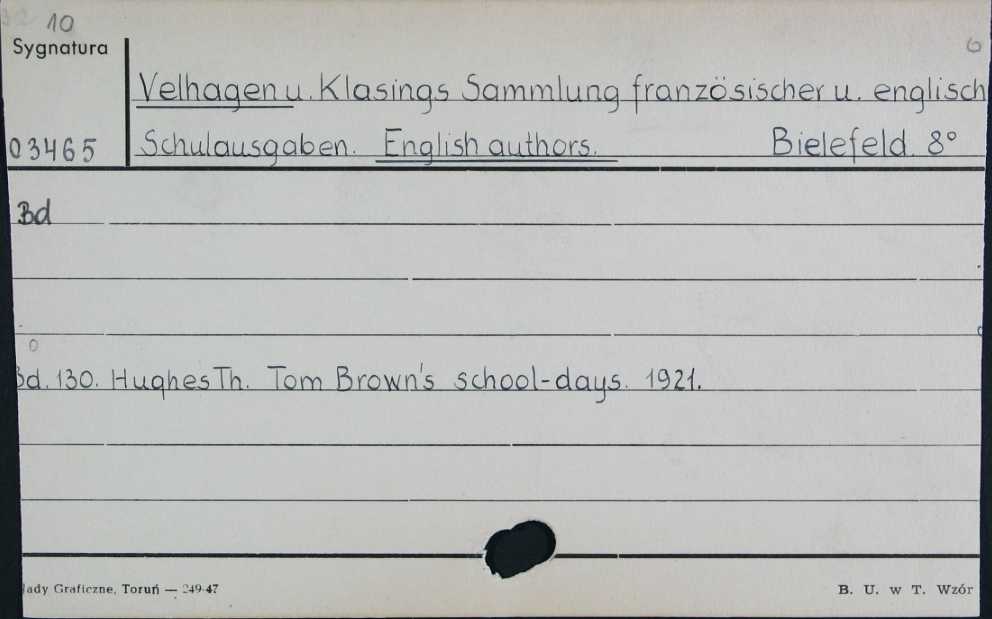 10
Sygnatura
6
Velhagen u. Klasings Sammlung französischer u. englisch
03465 Schulausgaben. English authors. Bielefeld. 8°
Bd
0
Bd. 130. Hughes Th. Tom Brown's school-days. 1921.
łady Graficzne, Toruń — 249-47 B. U. w T. Wzór